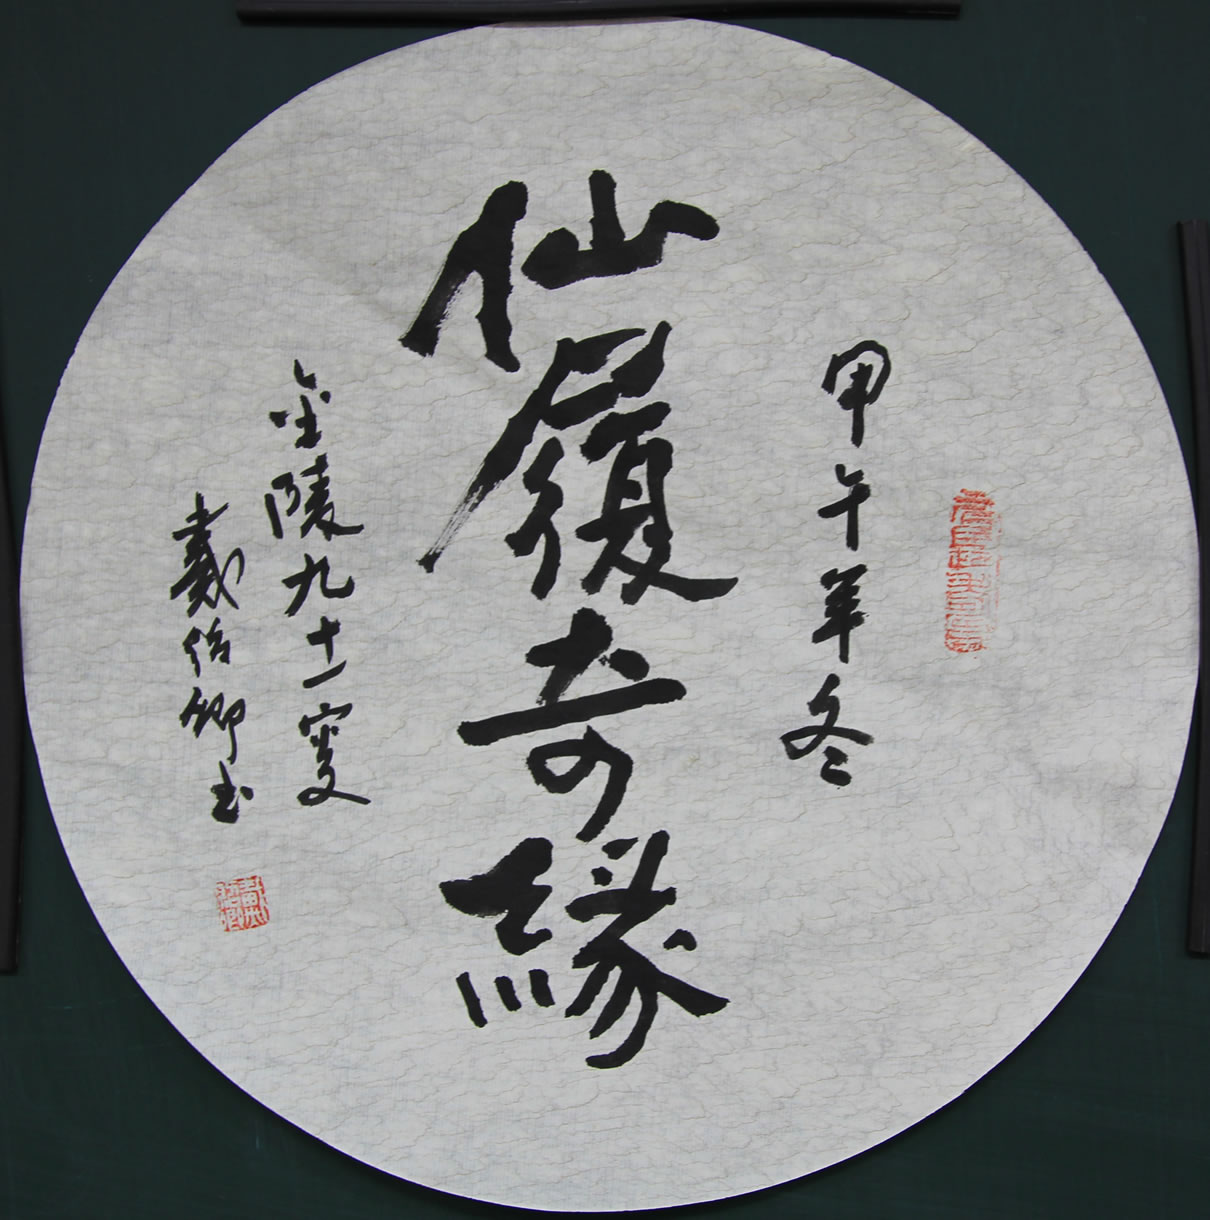 甲午年冬
仙履奇緣
金陵九十一叟
戴倍卿书